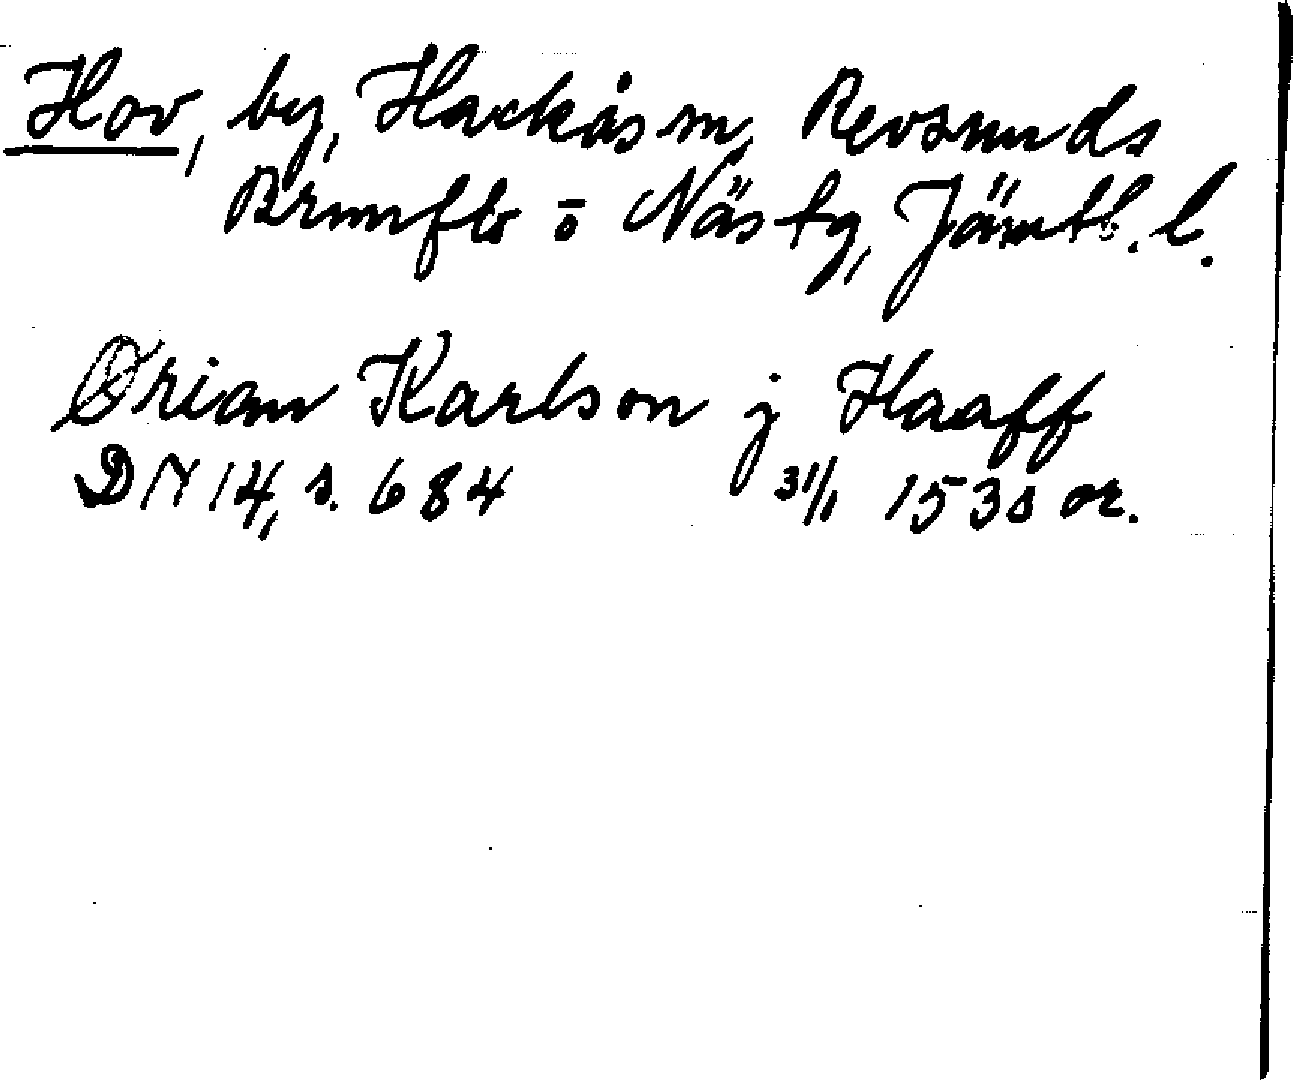 Hov, by, Hackås sn, Revsunds
Brunflo o Näs tg, Jämtl. l.
Örian Karlson j Haaff
DN 14, s. 684 31/1 1530 or.